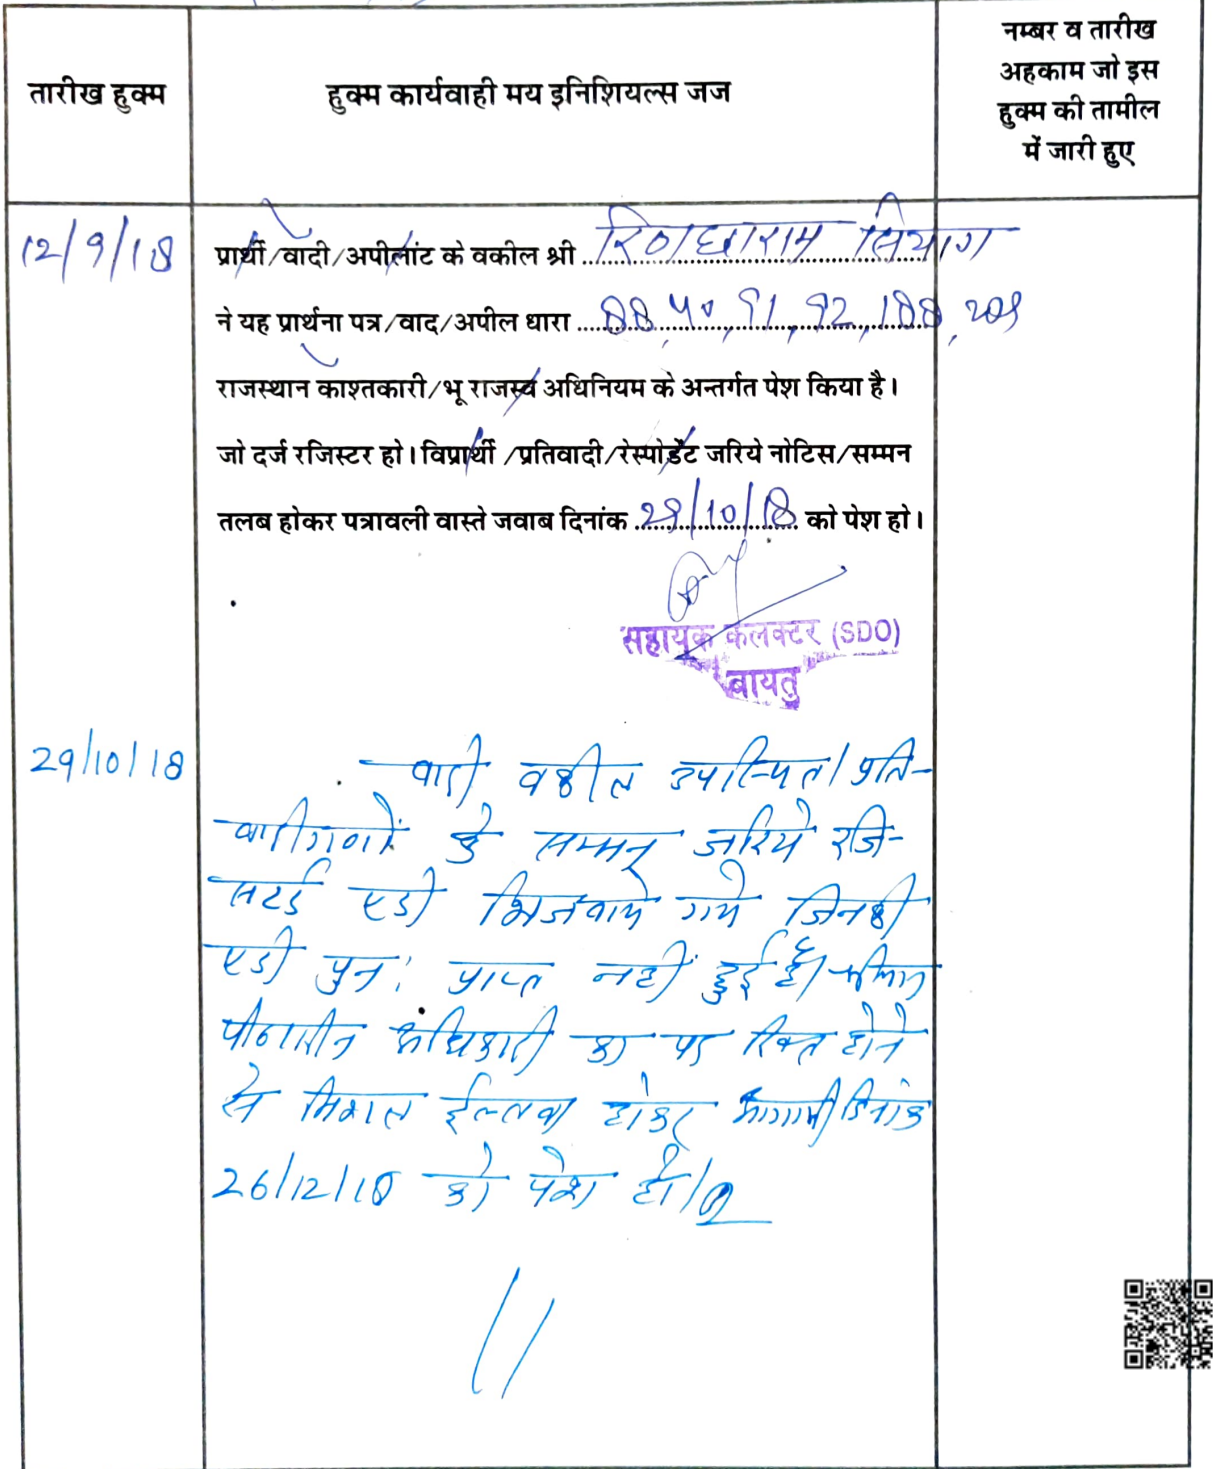 तारीख हुक्म
हुक्म कार्यवाही मय इनिशियल्स जज
नम्बर व तारीख
अहकाम जो इस
हुक्म की तामील
में जारी हुए
12/9/18
प्रार्थी/वादी/अपीलांट के वकील श्री रिणछाराम सियाग
ने यह प्रार्थना पत्र/वाद/अपील धारा 88, 90, 91, 92, 188, 209
राजस्थान काश्तकारी/भू राजस्व अधिनियम के अन्तर्गत पेश किया है।
जो दर्ज रजिस्टर हो। विप्रार्थी /प्रतिवादी/रेस्पोडेंट जरिये नोटिस/सम्मन
तलब होकर पत्रावली वास्ते जवाब दिनांक 29/10/18 को पेश हो।
सहायक कलक्टर (SDO)
बायतु
29/10/18
वादी वकील उपस्थित। प्रति-
वादीगणों के सम्मन जरिये रजि-
सटर्ड एडी भिजवाये गये जिनकी
एडी पुन: प्राप्त नहीं हुई है।
पीठासीन अधिकारी का पद रिक्त होने
से मिशल ईल्तवा होकर आगामी दिनांक
26/12/18 को पेश हो।